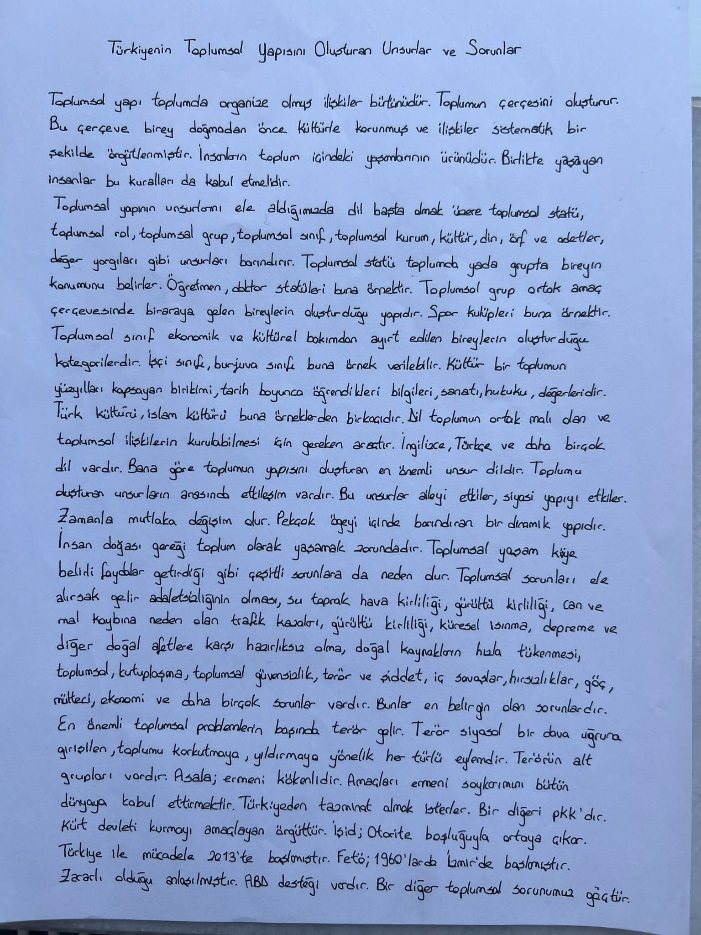 Türkiyenin Toplumsal Yapısını Oluşturan Unsurlar ve Sorunlar
Toplumsal yapı toplumda organize olmuş ilişkiler bütünüdür. Toplumun çerçesini oluşturur.
Bu çerçeve birey doğmadan önce kültürle korunmuş ve ilişkiler sistematik bir
şekilde örgütlenmiştir. İnsanların toplum içindeki yaşamlarının ürünüdür. Birlikte yaşayan
insanlar bu kuralları da kabul etmelidir.
Toplumsal yapının unsurlarını ele aldığımızda dil başta olmak üzere toplumsal statü,
toplumsal rol, toplumsal grup, toplumsal sınıf, toplumsal kurum, kültür, din, örf ve adetler,
değer yargıları gibi unsurları barındırır. Toplumsal statü toplumda yada grupta bireyin
konumunu belirler. Öğretmen, doktor statüleri buna örnektir. Toplumsal grup ortak amaç
çerçevesinde biraraya gelen bireylerin oluşturduğu yapıdır. Spor kulüpleri buna örnektir.
Toplumsal sınıf ekonomik ve kültürel bakımdan ayırt edilen bireylerin oluşturduğu
kategorilerdir. İşçi sınıfı, burjuva sınıfı buna örnek verilebilir. Kültür bir toplumun
yüzyılları kapsayan birikimi, tarih boyunca öğrendikleri bilgileri, sanatı, hukuku, değerleridir.
Türk kültürü, islam kültürü buna örneklerden birkaçıdır. Dil toplumun ortak malı olan ve
toplumsal ilişkilerin kurulabilmesi için gereken araçtır. İngilizce, Türkçe ve daha birçok
dil vardır. Bana göre toplumun yapısını oluşturan en önemli unsur dildir. Toplumu
oluşturan unsurların arasında etkileşim vardır. Bu unsurlar aileyi etkiler, siyasi yapıyı etkiler.
Zamanla mutlaka değişim olur. Pekçok ögeyi içinde barındıran bir dinamik yapıdır.
İnsan doğası gereği toplum olarak yaşamak zorundadır. Toplumsal yaşam kişiye
belirli faydalar getirdiği gibi çeşitli sorunlara da neden olur. Toplumsal sorunları ele
alırsak gelir adaletsizliğinin olması, su toprak hava kirliliği, gürültü kirliliği, can ve
mal kaybına neden olan trafik kazaları, gürültü kirliliği, küresel ısınma, depreme ve
diğer doğal afetlere karşı hazırlıksız olma, doğal kaynakların hızla tükenmesi,
toplumsal, kutuplaşma, toplumsal güvensizlik, terör ve şiddet, iç savaşlar, hırsızlıklar, göç,
mülteci, ekonomi ve daha birçok sorunlar vardır. Bunlar en belirgin olan sorunlardır.
En önemli toplumsal problemlerin başında terör gelir. Terör siyasal bir dava uğruna
girişilen, toplumu korkutmaya, yıldırmaya yönelik her türlü eylemdir. Terörün alt
grupları vardır. Asala; ermeni kökenlidir. Amaçları ermeni soykırımını bütün
dünyaya kabul ettirmektir. Türkiyeden tazminat almak isterler. Bir diğeri pkk'dır.
Kürt devleti kurmayı amaçlayan örgüttür. İşid; Otorite boşluğuyla ortaya çıkar.
Türkiye ile mücadele 2013'te başlamıştır. Fetö; 1960'larda İzmir'de başlamıştır.
Zararlı olduğu anlaşılmıştır. ABD desteği vardır. Bir diğer toplumsal sorunumuz göçtür.